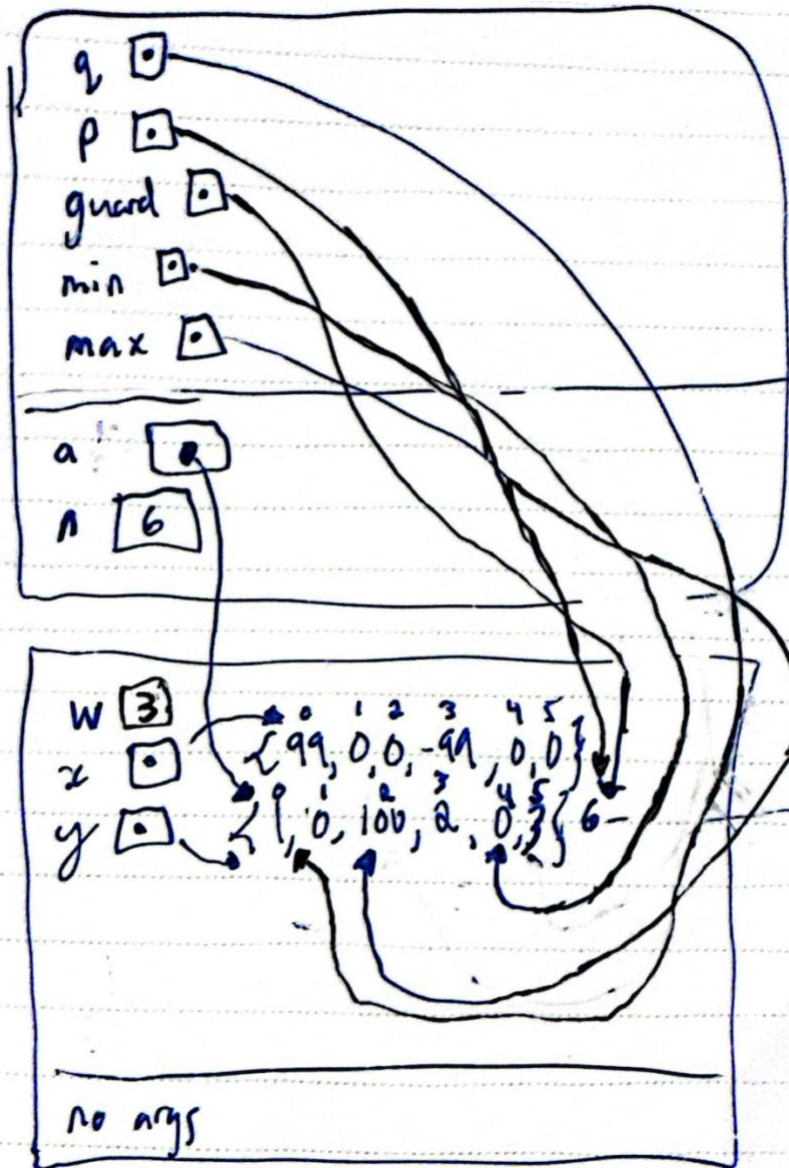 q
p
guard
min
max
a
n 6
w 3
0 1 2 3 4 5
x {99, 0, 0, -99, 0, 0}
0 1 2 3 4 5
y {1, 0, 100, 2, 0, 3} 6
no args